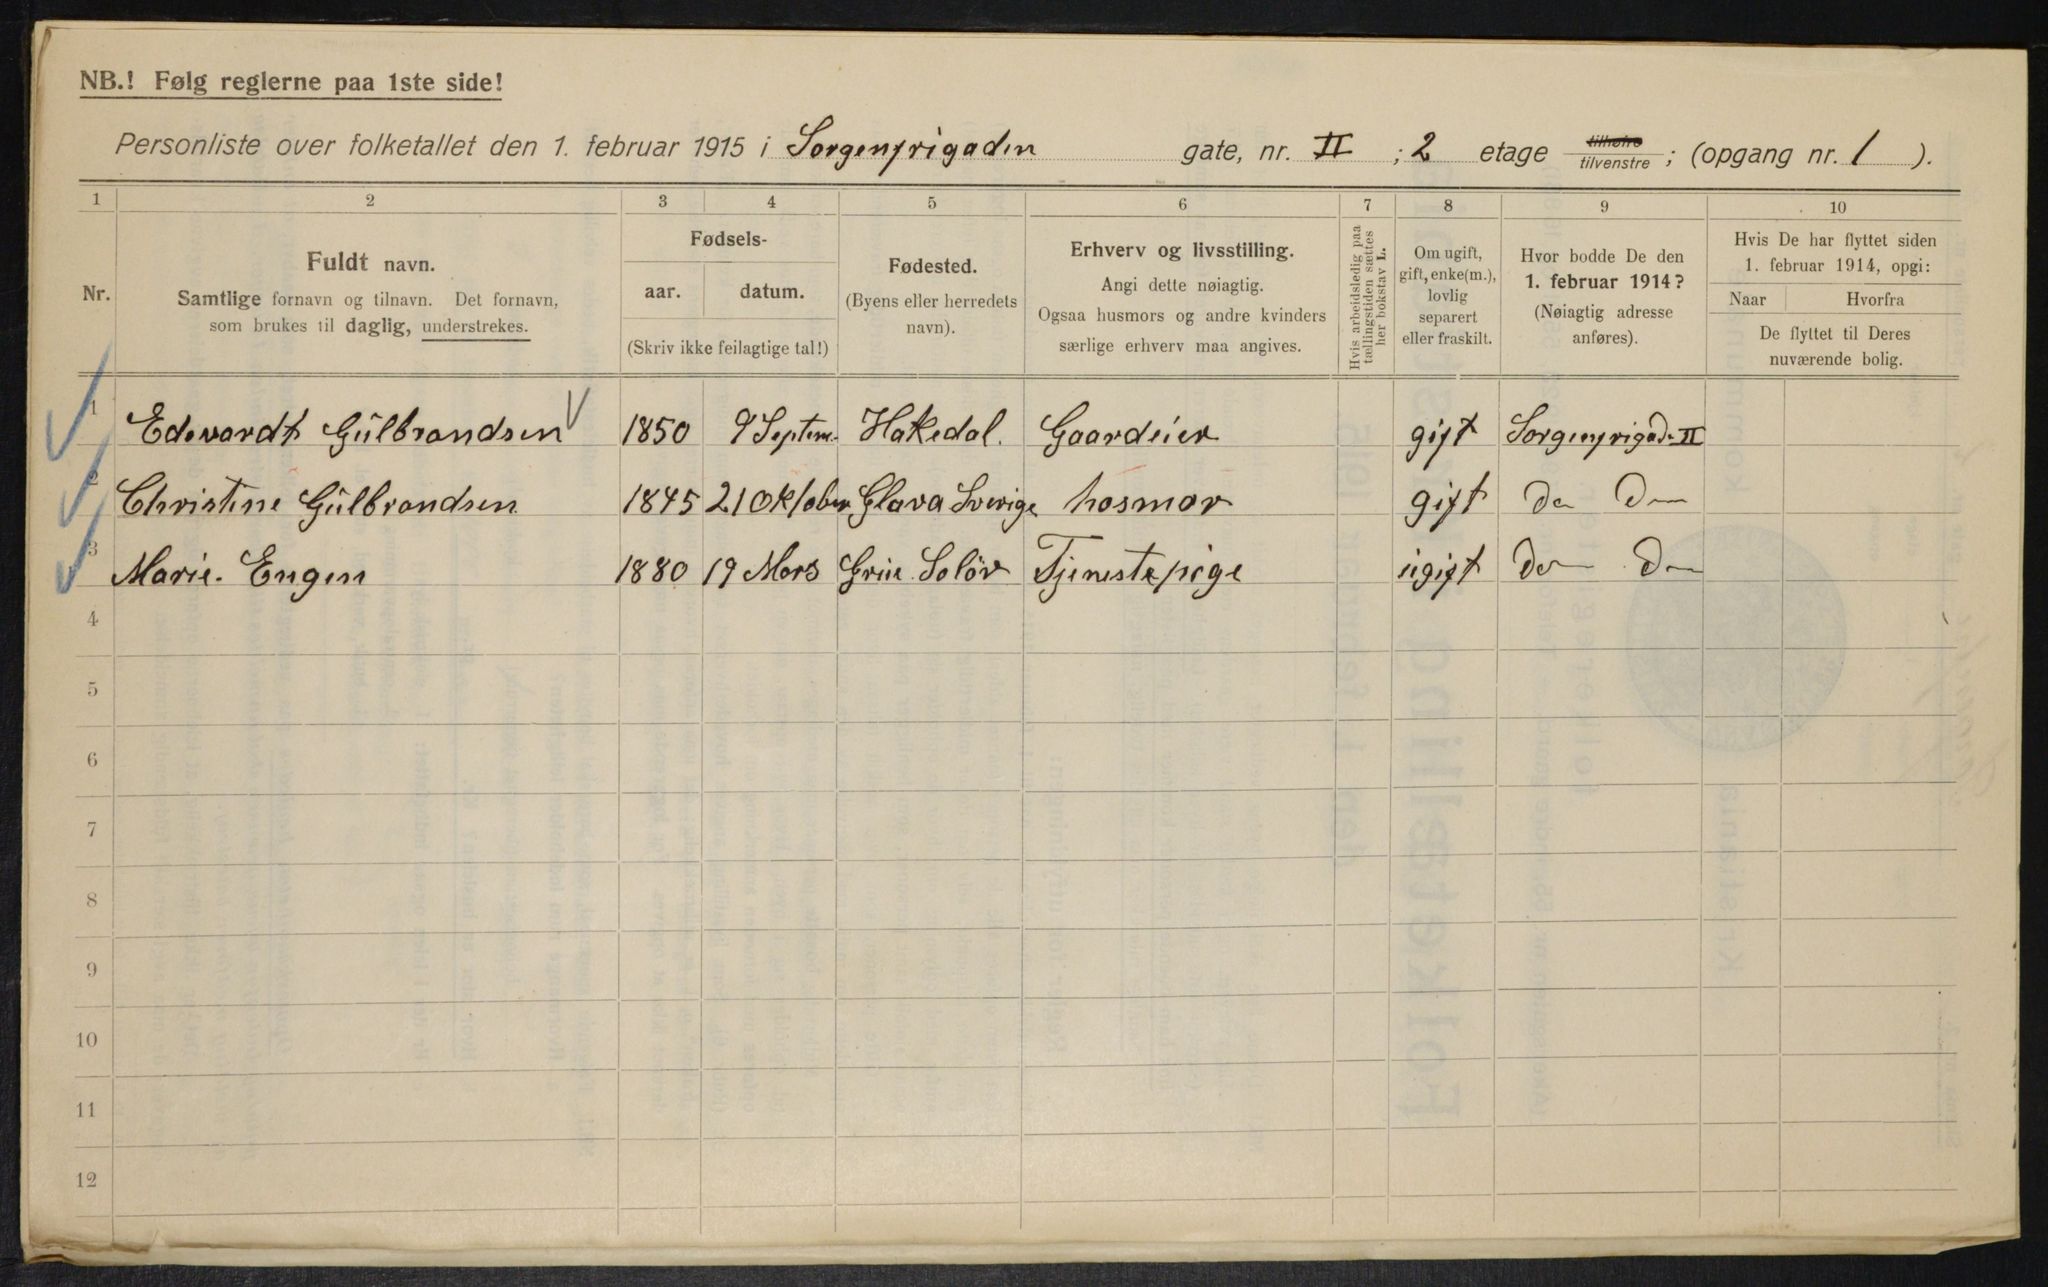 NB.! Følg reglerne paa 1ste side!
Personliste over folketallet den 1. februar 1915 i Sorgenfrigaden gate, nr. II ; 2 etage tilhøire tilvenstre ; (opgang nr. 1 ).
1 2 3 4 5 6 7 8 9 10
Nr.
Fuldt navn.
Samtlige fornavn og tilnavn. Det fornavn,
som brukes til daglig, understrekes.
Fødsels-
aar. datum.
(Skriv ikke feilagtige tal!)
Fødested.
(Byens eller herredets
navn).
Erhverv og livsstilling.
Angi dette nøiagtig.
Ogsaa husmors og andre kvinders
særlige erhverv maa angives.
Hvis arbeidsledig paa
tællingstiden sættes
her bokstav L.
Om ugift,
gift, enke(m.),
lovlig
separert
eller fraskilt.
Hvor bodde De den
1. februar 1914?
(Nøiagtig adresse
anføres).
Hvis De har flyttet siden
1. februar 1914, opgi:
Naar Hvorfra
De flyttet til Deres
nuværende bolig.
1 Edevardt Gülbrandsen 1850 9 Septem. Hakedal. Gaardeier gift Sorgenfrigad. II
2 Christine Gülbrandsen 1845 21 Oktober Glava Sverige hosmor gift Do Do
3 Marie. Engen 1880 19 Mars Grue Solör Tjenestepige ugift Do Do
4
5
6
7
8
9
10
11
12